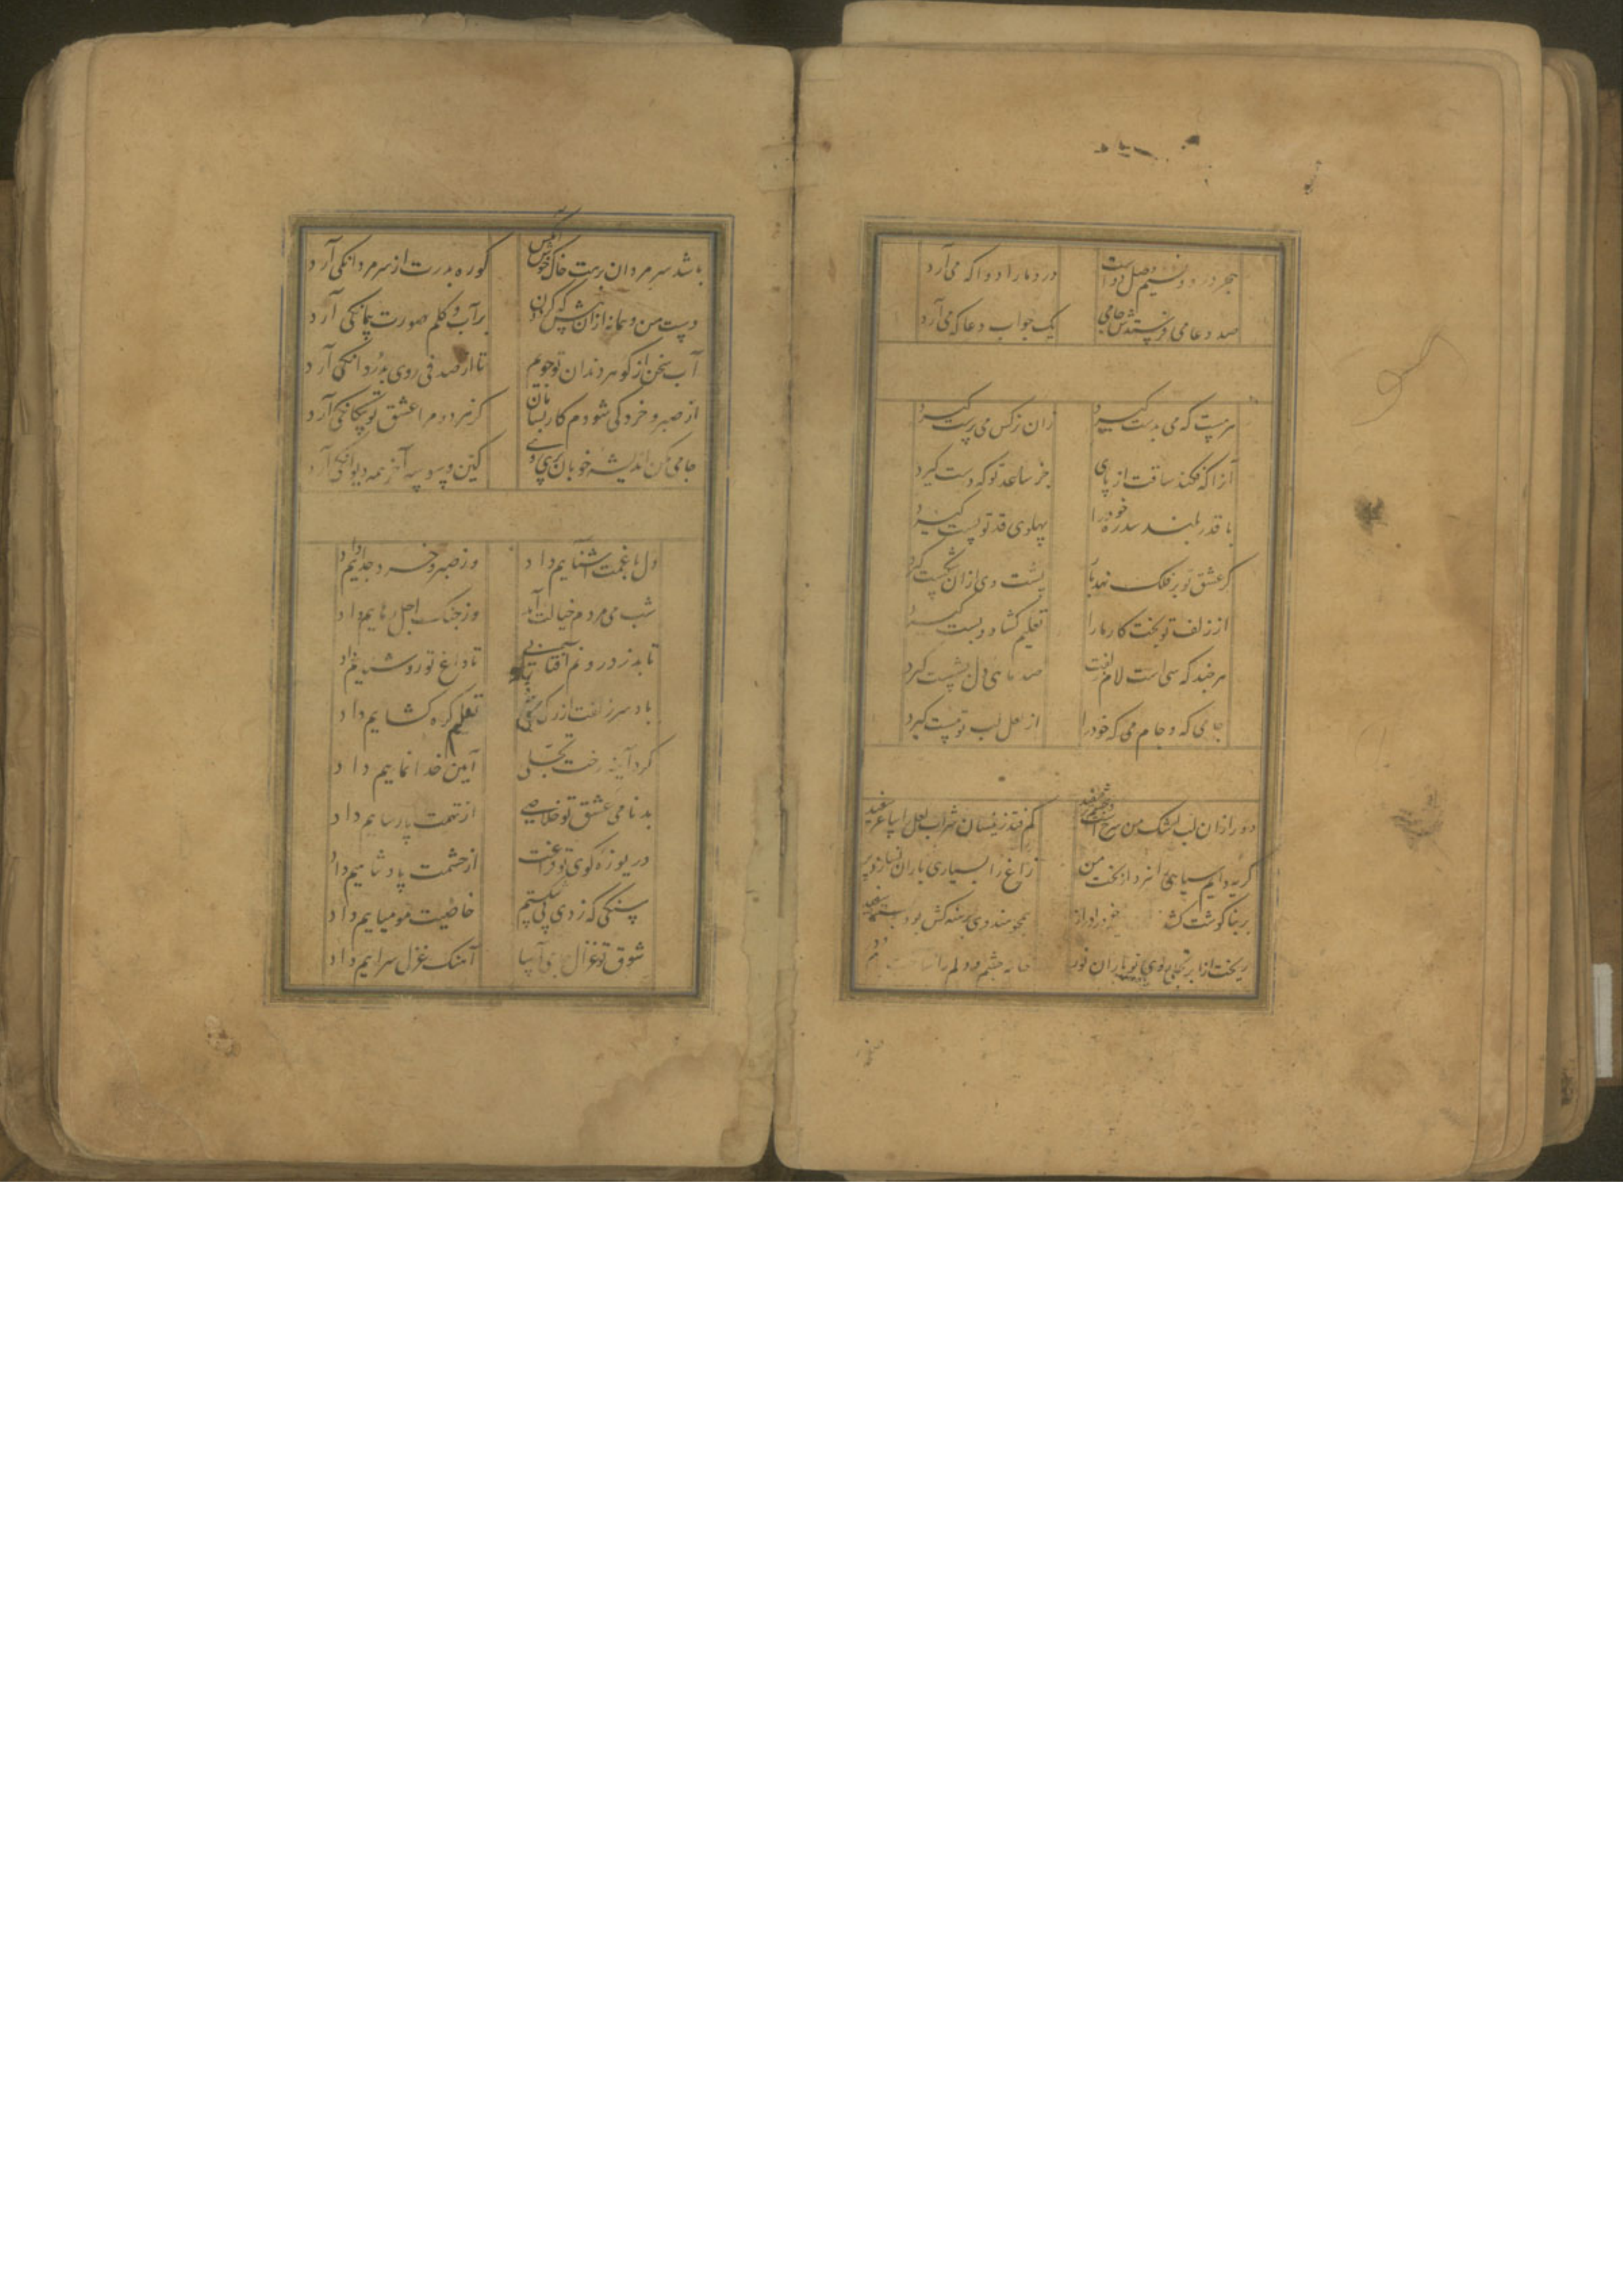 هجر درد و نسیم وصل دواست
درد ما را دوا که می آرد
صد دعا می فرستدش جامی
یک جواب دعا که می آرد
سرمست که می بدست گیرد
زان نرگس می پرست گیرد
آنرا که فکند ساقت از پای
جز ساعد تو که دست گیرد
با قدر بلند سدره خود را
پهلوی قد تو پست گیرد
گر عشق تو بر فلک نهد بار
پشت وی ازان شکست گیرد
از زلف تو بخت کار ما را
تعلیم گشاد و بست گیرد
هرچند که سی است لام زلفت
صد ماهی دل بشست گیرد
جامی که و جام می که خود را
از لعل لب تو مست گیرد
دور ازان لب اشک من سرخ است و چشمم سفید
گریه دایم سیاهی نبرد از بخت من
زاغ را بسیاری باران نسازد پر
بر بناگوشت کشد
ریخت از ابر تجلی روی تو باران نور
خانه چشم و دلم را ساخت
باشد سر مردان برهت خاک خوش آنکس
کو ره بدرت از سر مردانگی آرد
دست من و پیمانه ازان پیش که گردون
بر آب و گلم صورت پیمانگی آرد
آب سخن از گوهر دندان تو جویم
تا از صدفی روی به دردانگی آرد
از صبر و خرد کی شودم کار بسامان
گر نه رو مرا عشق تو بیگانگی آرد
جامی مکن اندیشه خوبان پری روی
کین وسوسه آخر همه دیوانگی آرد
دل با غمت آشناییم داد
وز صبر و خرد جداییم داد
شب می مردم خیالت آمد
وز چنگ اجل رهاییم داد
تابد ز درونم آفتابی
تا داغ تو روشناییم داد
باد سر زلفت از رگ
تعلیم گره گشاییم داد
کرد آینه رخت تجلی
آیین خدا نماییم داد
بدنامی عشق تو خلاصی
از تهمت پارساییم داد
دریوزه کوی تو فراغت
از حشمت پادشاییم داد
سنگی که زدی پی شکستم
خاصیت مومیاییم داد
شوق تو غزال
آهنگ غزل سراییم داد